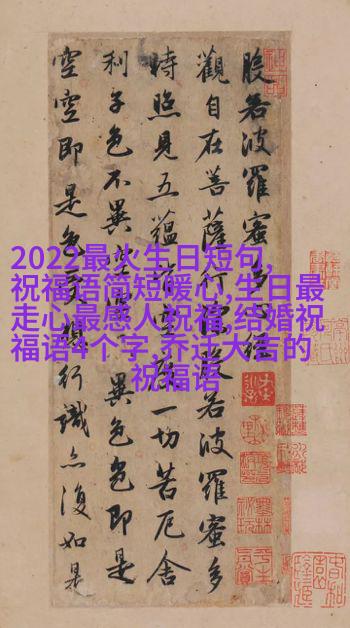 般若波羅蜜多心經
觀自在菩薩行深般若波羅蜜多
時照見五蘊皆空度一切苦厄舍
利子色不異空空不異色色即是
空空即是色受想行識亦復如是
2022最火生日短句,
祝福语简短暖心,生日最
走心最感人祝福,结婚祝
福语4个字,乔迁大吉的
祝福语